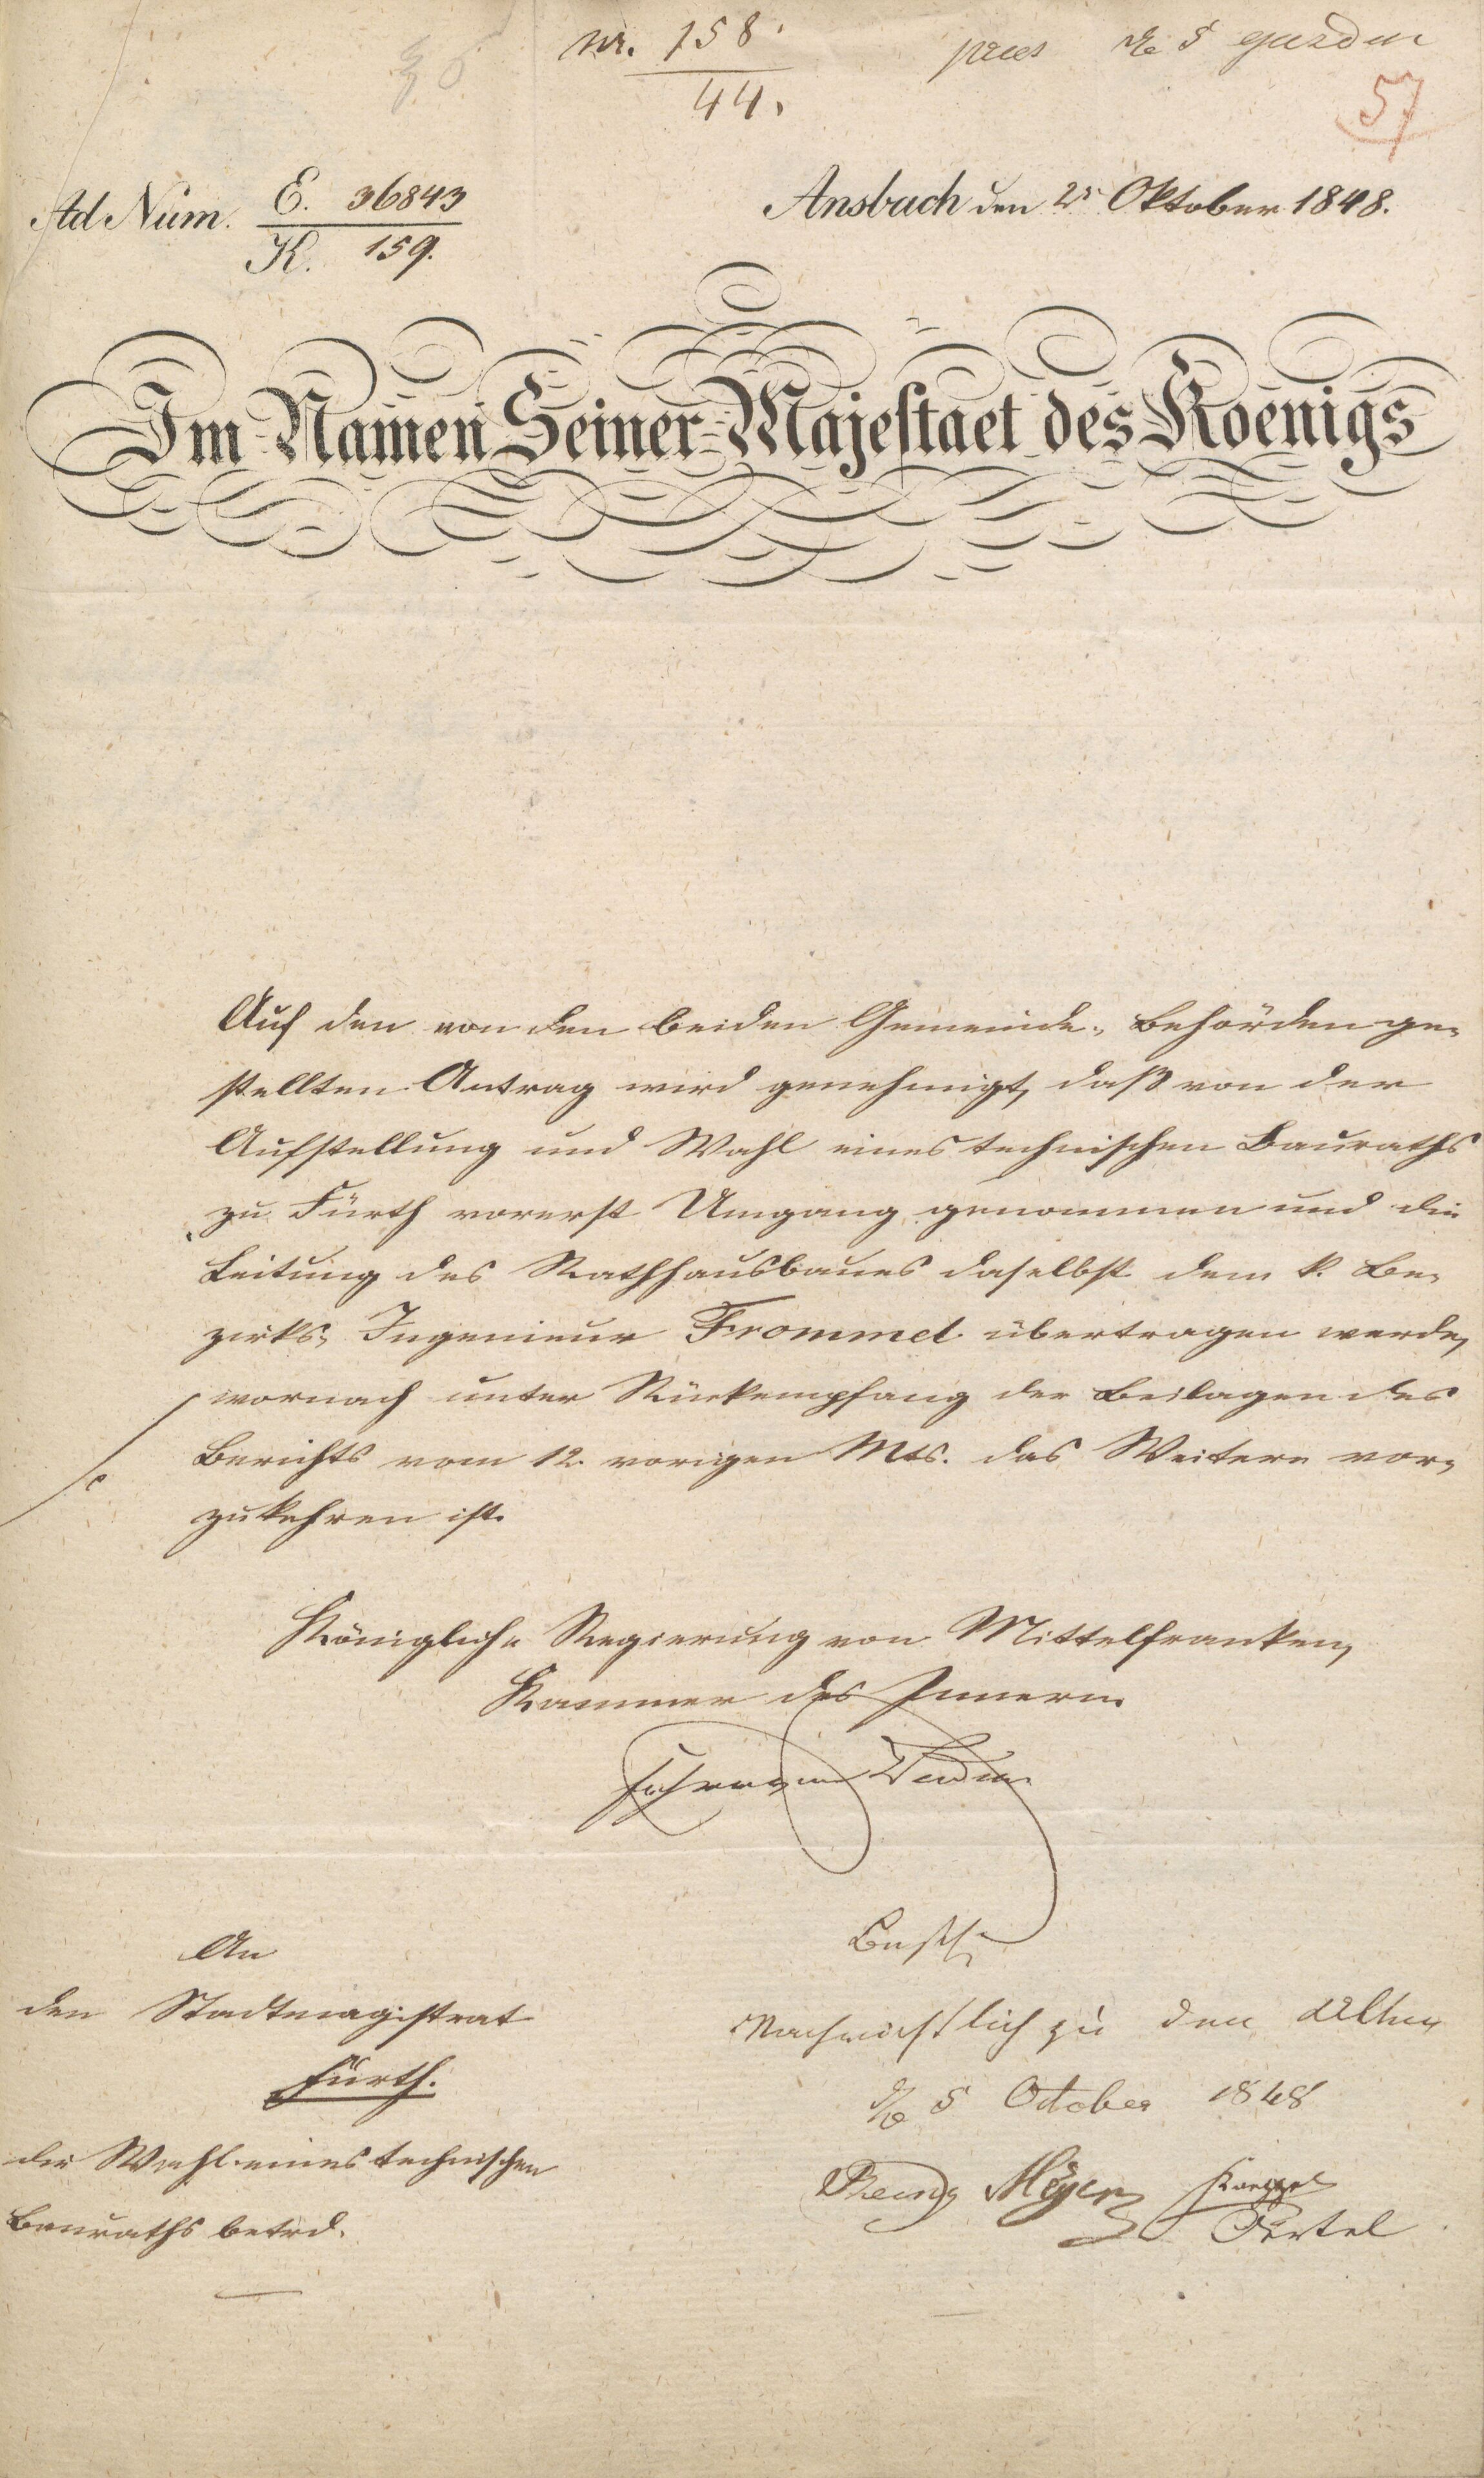 Nr. 158.
44.
57
Ad Num. E. 36843
K. 159.
Ansbach den 2ᵗ Oktober 1848.
Im Namen Seiner Majestaet des Koenigs
Auf den von den beiden Gemeinde-Behörden ge-
stellten Antrag wird genehmigt, daß von der
Aufstellung und Wahl eines technischen Bauraths
zu Fürth vorerst Umgang genommen und die
Leitung des Rathhausbaues daselbst dem k. Be-
zirks-Ingenieur Frommel übertragen werde,
wornach unter Rückempfang der Beilagen des
Berichts vom 12. vorigen Mts. das Weitere vor-
zukehren ist.
Königliche Regierung von Mittelfranken,
Kammer des Innern.
An
den Stadtmagistrat
Fürth.
die Wahl eines technischen
Bauraths betrd.
Beschl.
Nachrichtlich zu den Akten
5 October 1848
Meyer